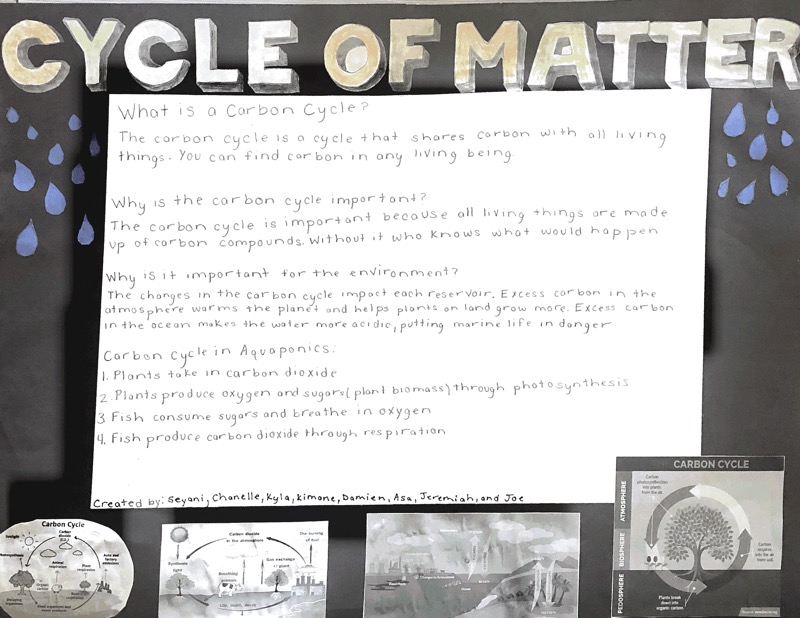 CYCLE OF MATTER
What is a Carbon Cycle?
The carbon cycle is a cycle that shares carbon with all living
things. You can find carbon in any living being.
Why is the carbon cycle important?
The carbon cycle is important because all living things are made
up of carbon compounds. Without it who knows what would happen
Why is it important for the environment?
The changes in the carbon cycle impact each reservoir. Excess carbon in the
atmosphere warms the planet and helps plants on land grow more. Excess carbon
in the ocean makes the water more acidic, putting marine life in danger
Carbon Cycle in Aquaponics:
1. Plants take in carbon dioxide
2. Plants produce oxygen and sugars (plant biomass) through photosynthesis
3. Fish consume sugars and breathe in oxygen
4. Fish produce carbon dioxide through respiration
Created by: Seyani, Chanelle, Kyla, Kimone, Damien, Asa, Jeremiah, and Joe
Carbon Cycle
Carbon
dioxide
Sunlight
Auto and
factory
emissions
Animal
respiration
Plant
respiration
Organic
carbon
Decaying
organisms
Carbon dioxide
in the atmosphere
The burning
of fuel
Gas exchange
Breathing
animals
light
CARBON CYCLE
ATMOSPHERE
BIOSPHERE
PEDOSPHERE
Carbon
into plants
from the air
Carbon
respires
into the air
from soil.
Plants break
down into
organic carbon